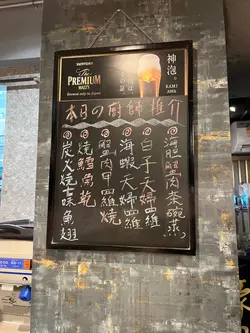 SUNTORY
The
PREMIUM
MALT'S
Brewed only in Japan
神泡。
KAMI
AWA
本日の廚師推介
海胆蟹肉茶碗蒸
白子天婦羅
海蝦天婦羅
蟹肉甲羅燒
燒鱈魚乾
炭火燒味魚翅